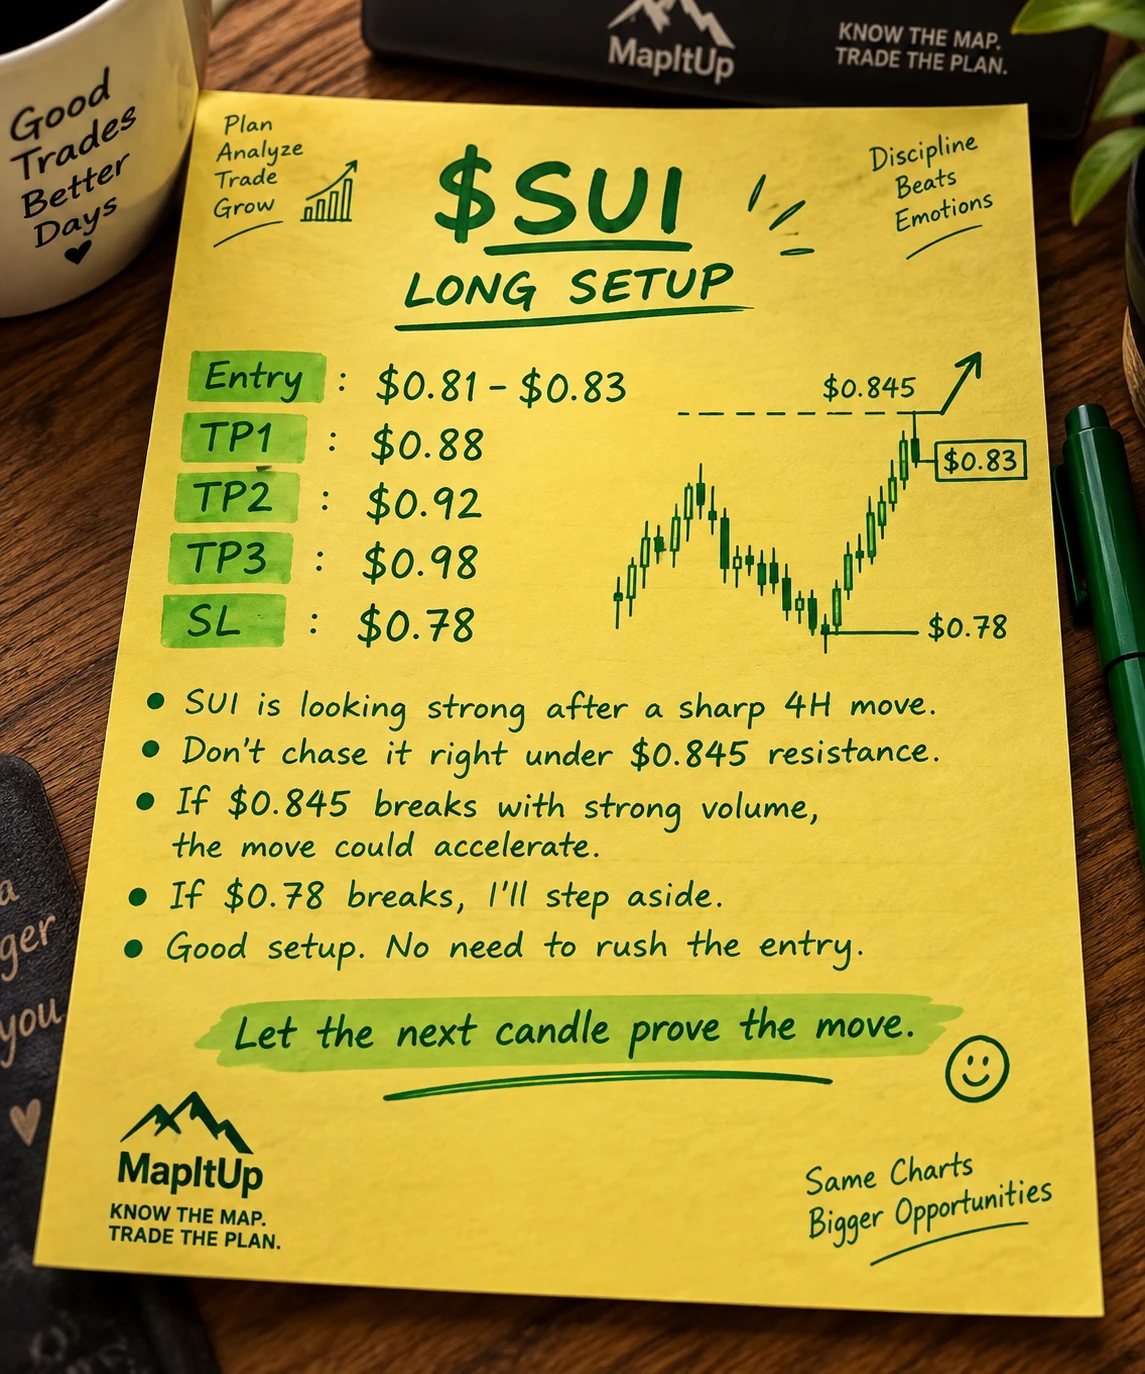 Good
Trades
Better
Days
MapItUp
KNOW THE MAP.
TRADE THE PLAN.
Plan
Analyze
Trade
Grow
$SUI
LONG SETUP
Discipline
Beats
Emotions
Entry : $0.81 - $0.83
TP1 : $0.88
TP2 : $0.92
TP3 : $0.98
SL : $0.78
$0.845
$0.83
$0.78
• SUI is looking strong after a sharp 4H move.
• Don't chase it right under $0.845 resistance.
• If $0.845 breaks with strong volume,
the move could accelerate.
• If $0.78 breaks, I'll step aside.
• Good setup. No need to rush the entry.
Let the next candle prove the move.
MapItUp
KNOW THE MAP.
TRADE THE PLAN.
Same Charts
Bigger Opportunities
you